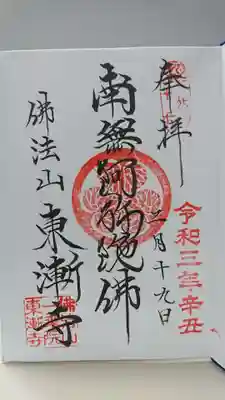 奉拝
令和三年辛丑
二月十九日
南無阿弥陀佛
佛法山東漸寺
東漸寺